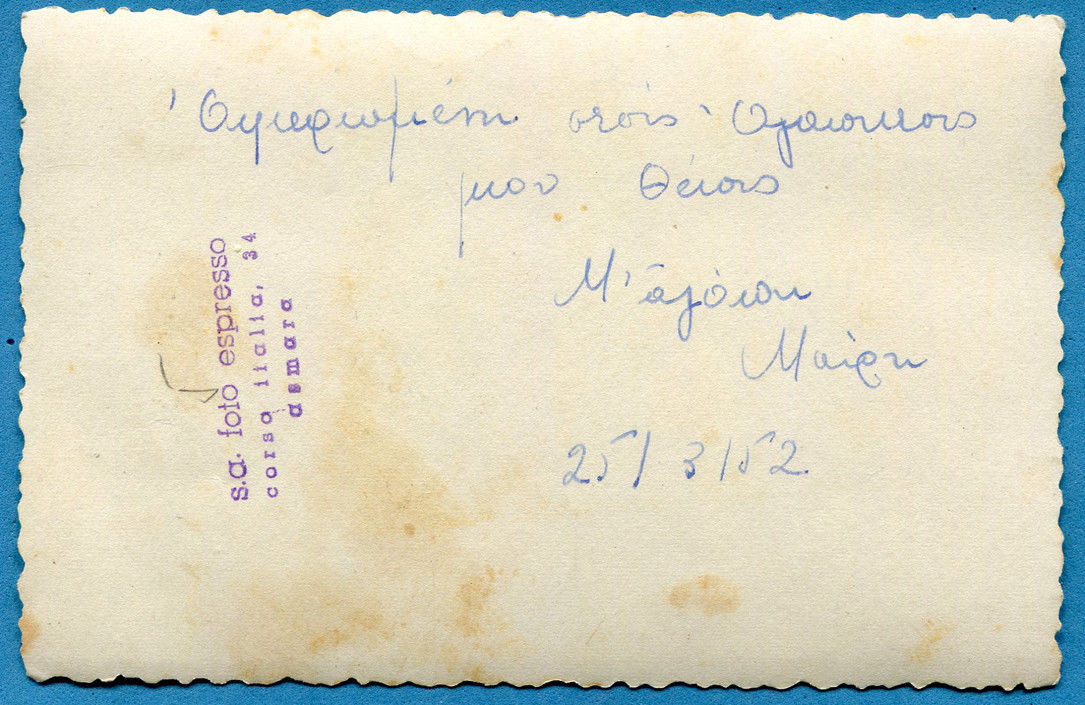 Ἀφιερωμένη στούς Ἀγαπητούς
μου Θείους
Μ' ἀγάπη
Μαίρη
25/3/52
s.a. foto espresso
corso italia, 34
asmara